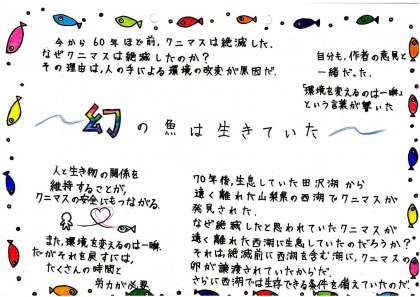 今から60年ほど前、クニマスは絶滅した。
なぜクニマスは絶滅したのか?
その理由は、人の手による環境の改変が原因だ。
自分も、作者の意見と
一緒だった。
「環境を変えるのは一瞬」
という言葉が響いた
～幻の魚は生きていた～
人と生き物の関係を
維持することが、
クニマスの安全にもつながる。
また、環境を変えるのは一瞬。
だがそれを戻すには、
たくさんの時間と
労力が必要
70年後、生息していた田沢湖から
遠く離れた山梨県の西湖でクニマスが
発見された。
なぜ絶滅したと思われていたクニマスが
遠く離れた西湖に生息していたのだろうか?
それは、絶滅前に西湖を含む湖に、クニマスの
卵が譲渡されていたからだ。
さらに西湖では生存できる条件を備えていたのだ。